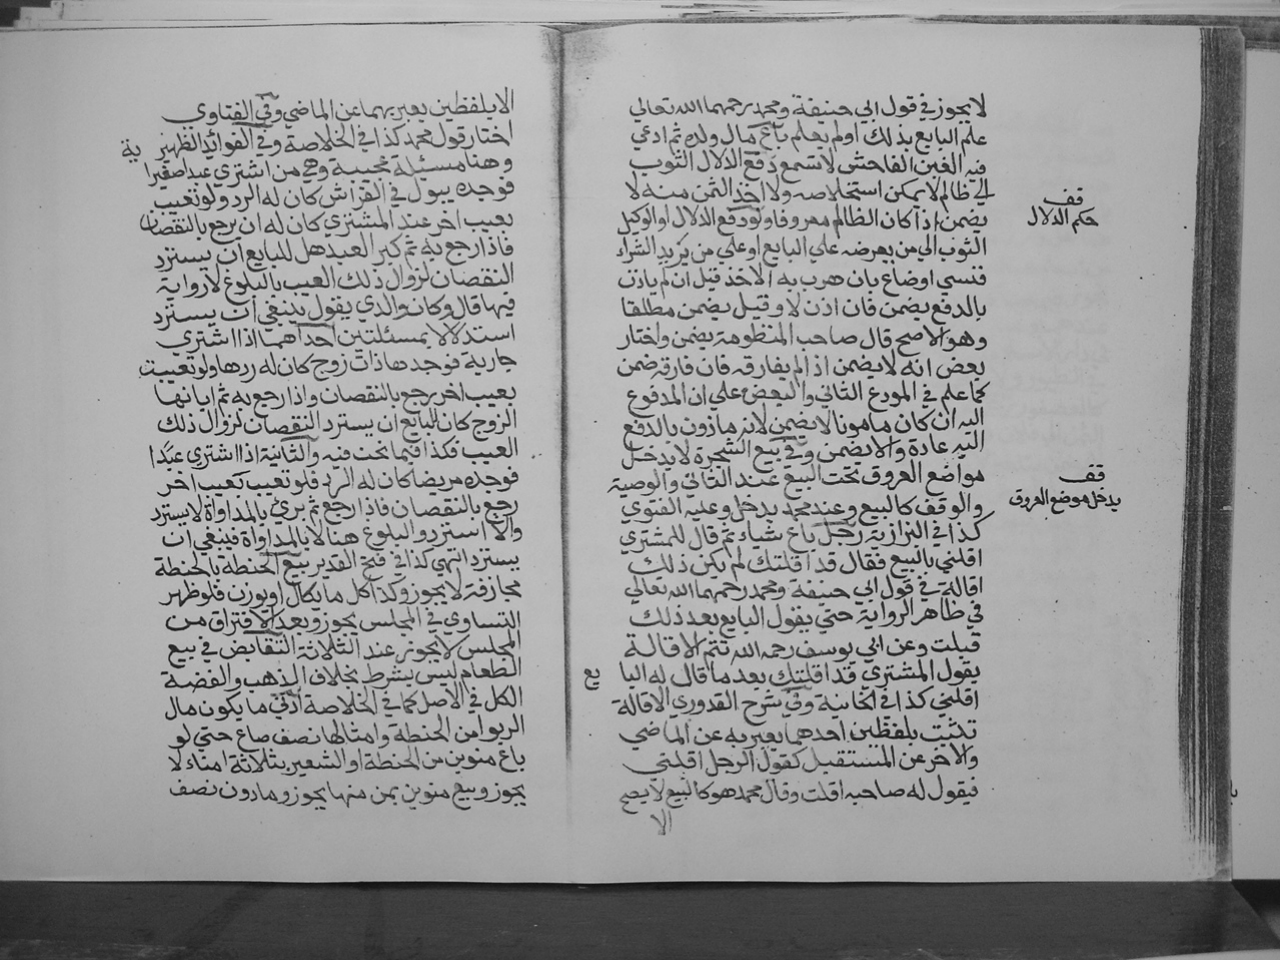 لا يجوز في قول ابي حنيفة ومحمد رحمهما الله تعالي
علم البايع بذلك اولم يعلم باع مال ولده ثم ادعي
فيه الغبن الفاحش لا تسمع دفع الدلال الثوب
الي ظالم لا يمكن استخلاصه ولا اخذ الثمن منه لا
يضمن اذا كان الظالم معروفا ولو دفع الدلال او الوكيل
الثوب الي من يعرضه علي البايع او علي من يريد الشراء
فنسي اوضاع بان هرب به الاخذ قيل ان لم ياذن
بالدفع يضمن فان اذن لا وقيل يضمن مطلقا
وهو الاصح قال صاحب المنظومة يضمن واختار
بعض انه لا يضمن اذ الم يفارقه فان فارقه ضمن
كما علم في المودع الثاني والبعض علي ان المدفوع
اليه ان كان مامونا لا يضمن لانه ماذون بالدفع
اليه عادة والا يضمن وفي بيع الشجرة لا يدخل
مواضع العروق تحت البيع عند الثاني والوصية
والوقف كالبيع وعند محمد يدخل وعليه الفتوي
كذا في البزازية رجل باع شياء ثم قال للمشتري
اقلني بالبيع فقال قد اقلتك لم يكن ذلك
اقالة في قول ابي حنيفة ومحمد رحمهما الله تعالي
في ظاهر الرواية حتي يقول البايع بعد ذلك
قبلت وعن ابي يوسف رحمه الله تتم الاقالة
يقول المشتري قد اقلتك بعد ما قال له البا يع
اقلني كذا في الخانية وفي شرح القدوري الاقالة
تثبت بلفظين احدهما يعبر به عن الماضي
والاخر عن المستقبل كقول الرجل اقلني
فيقول له صاحبه اقلت وقال محمد هو كالبيع لا يصح
الا
قف
حكم الدلال
قف
يدخل موضع العروق
الا بلفظين يعبر بهما عن الماضي وفي الفتاوي
اختار قول محمد كذا في الخلاصة وفي الفوائد الظهير ية
وهنا مسئلة عجيبة وهي من اشتري عبدا صغيرا
فوجده يبول في الفراش كان له الرد ولو تعيب
بعيب اخر عند المشتري كان له ان يرجع بالنقصان
فاذا رجع به ثم كبر العبد هل للبايع ان يسترد
النقصان لزوال ذلك العيب بالبلوغ لا رواية
فيها قال وكان والدي يقول ينبغي ان يسترد
استدلالا بمسئلتين احداهما اذا اشتري
جارية فوجدها ذات زوج كان له ردها ولو تعيبت
بعيب اخر رجع بالنقصان واذا رجع به ثم ابانها
الزوج كان للبايع ان يسترد النقصان لزوال ذلك
العيب فكذا فيما نحن فيه والثانية اذا اشتري عبدا
فوجده مريضا كان له الرد فلو تعيب بعيب اخر
رجع بالنقصان فاذا رجع ثم بري بالمداواة لا يسترد
والا استرد والبلوغ هنا لا بالمداواة فينبغي ان
يسترد انتهي كذا في فتح القدير بيع الحنطة بالحنطة
مجازفة لا يجوز وكذا كل ما يكال او يوزن فلو ظهر
التساوي في المجلس يجوز وبعد الافتراق من
المجلس لا يجوز عند الثلاثة التقابض في بيع
الطعام ليس بشرط بخلاف الذهب والفضة
الكل في الاصل كما في الخلاصة ادني ما يكون مال
الربو من الحنطة وامثالها نصف صاع حتي لو
باع منوين من الحنطة او الشعير بثلاثة امناء لا
يجوز وبيع منوين بمن منها يجوز وما دون نصف